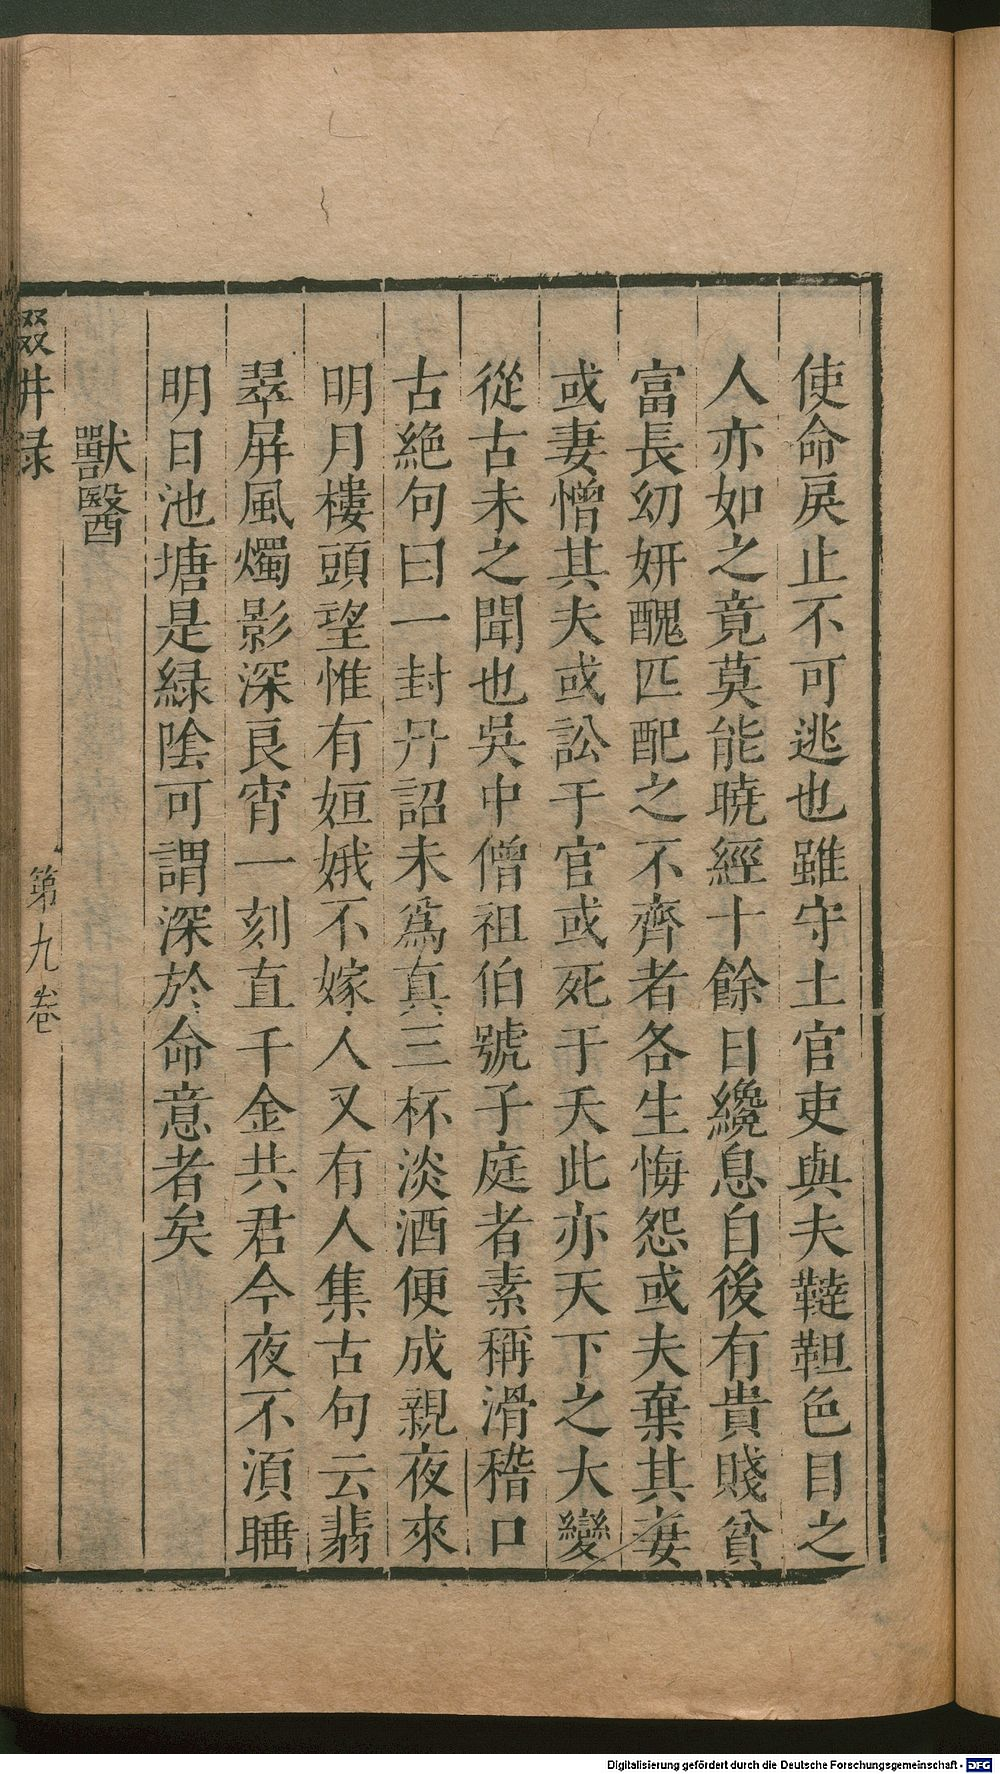 使命戾止不可逃也雖守土官吏與夫韃靼色目之
人亦如之竟莫能曉經十餘日纔息自後有貴賤貧
富長幼妍醜匹配之不齊者各生悔怨或夫棄其妻
或妻憎其夫或訟于官或死于夭此亦天下之大變
從古未之聞也吳中僧祖伯號子庭者素稱滑稽口
古絕句曰一封丹詔未爲真三杯淡酒便成親夜來
明月樓頭望惟有姮娥不嫁人又有人集古句云翡
翠屏風燭影深良宵一刻直千金共君今夜不須睡
明日池塘是綠陰可謂深於命意者矣
獸醫
輟畊録
第九卷
Digitalisierung gefördert durch die Deutsche Forschungsgemeinschaft - DFG